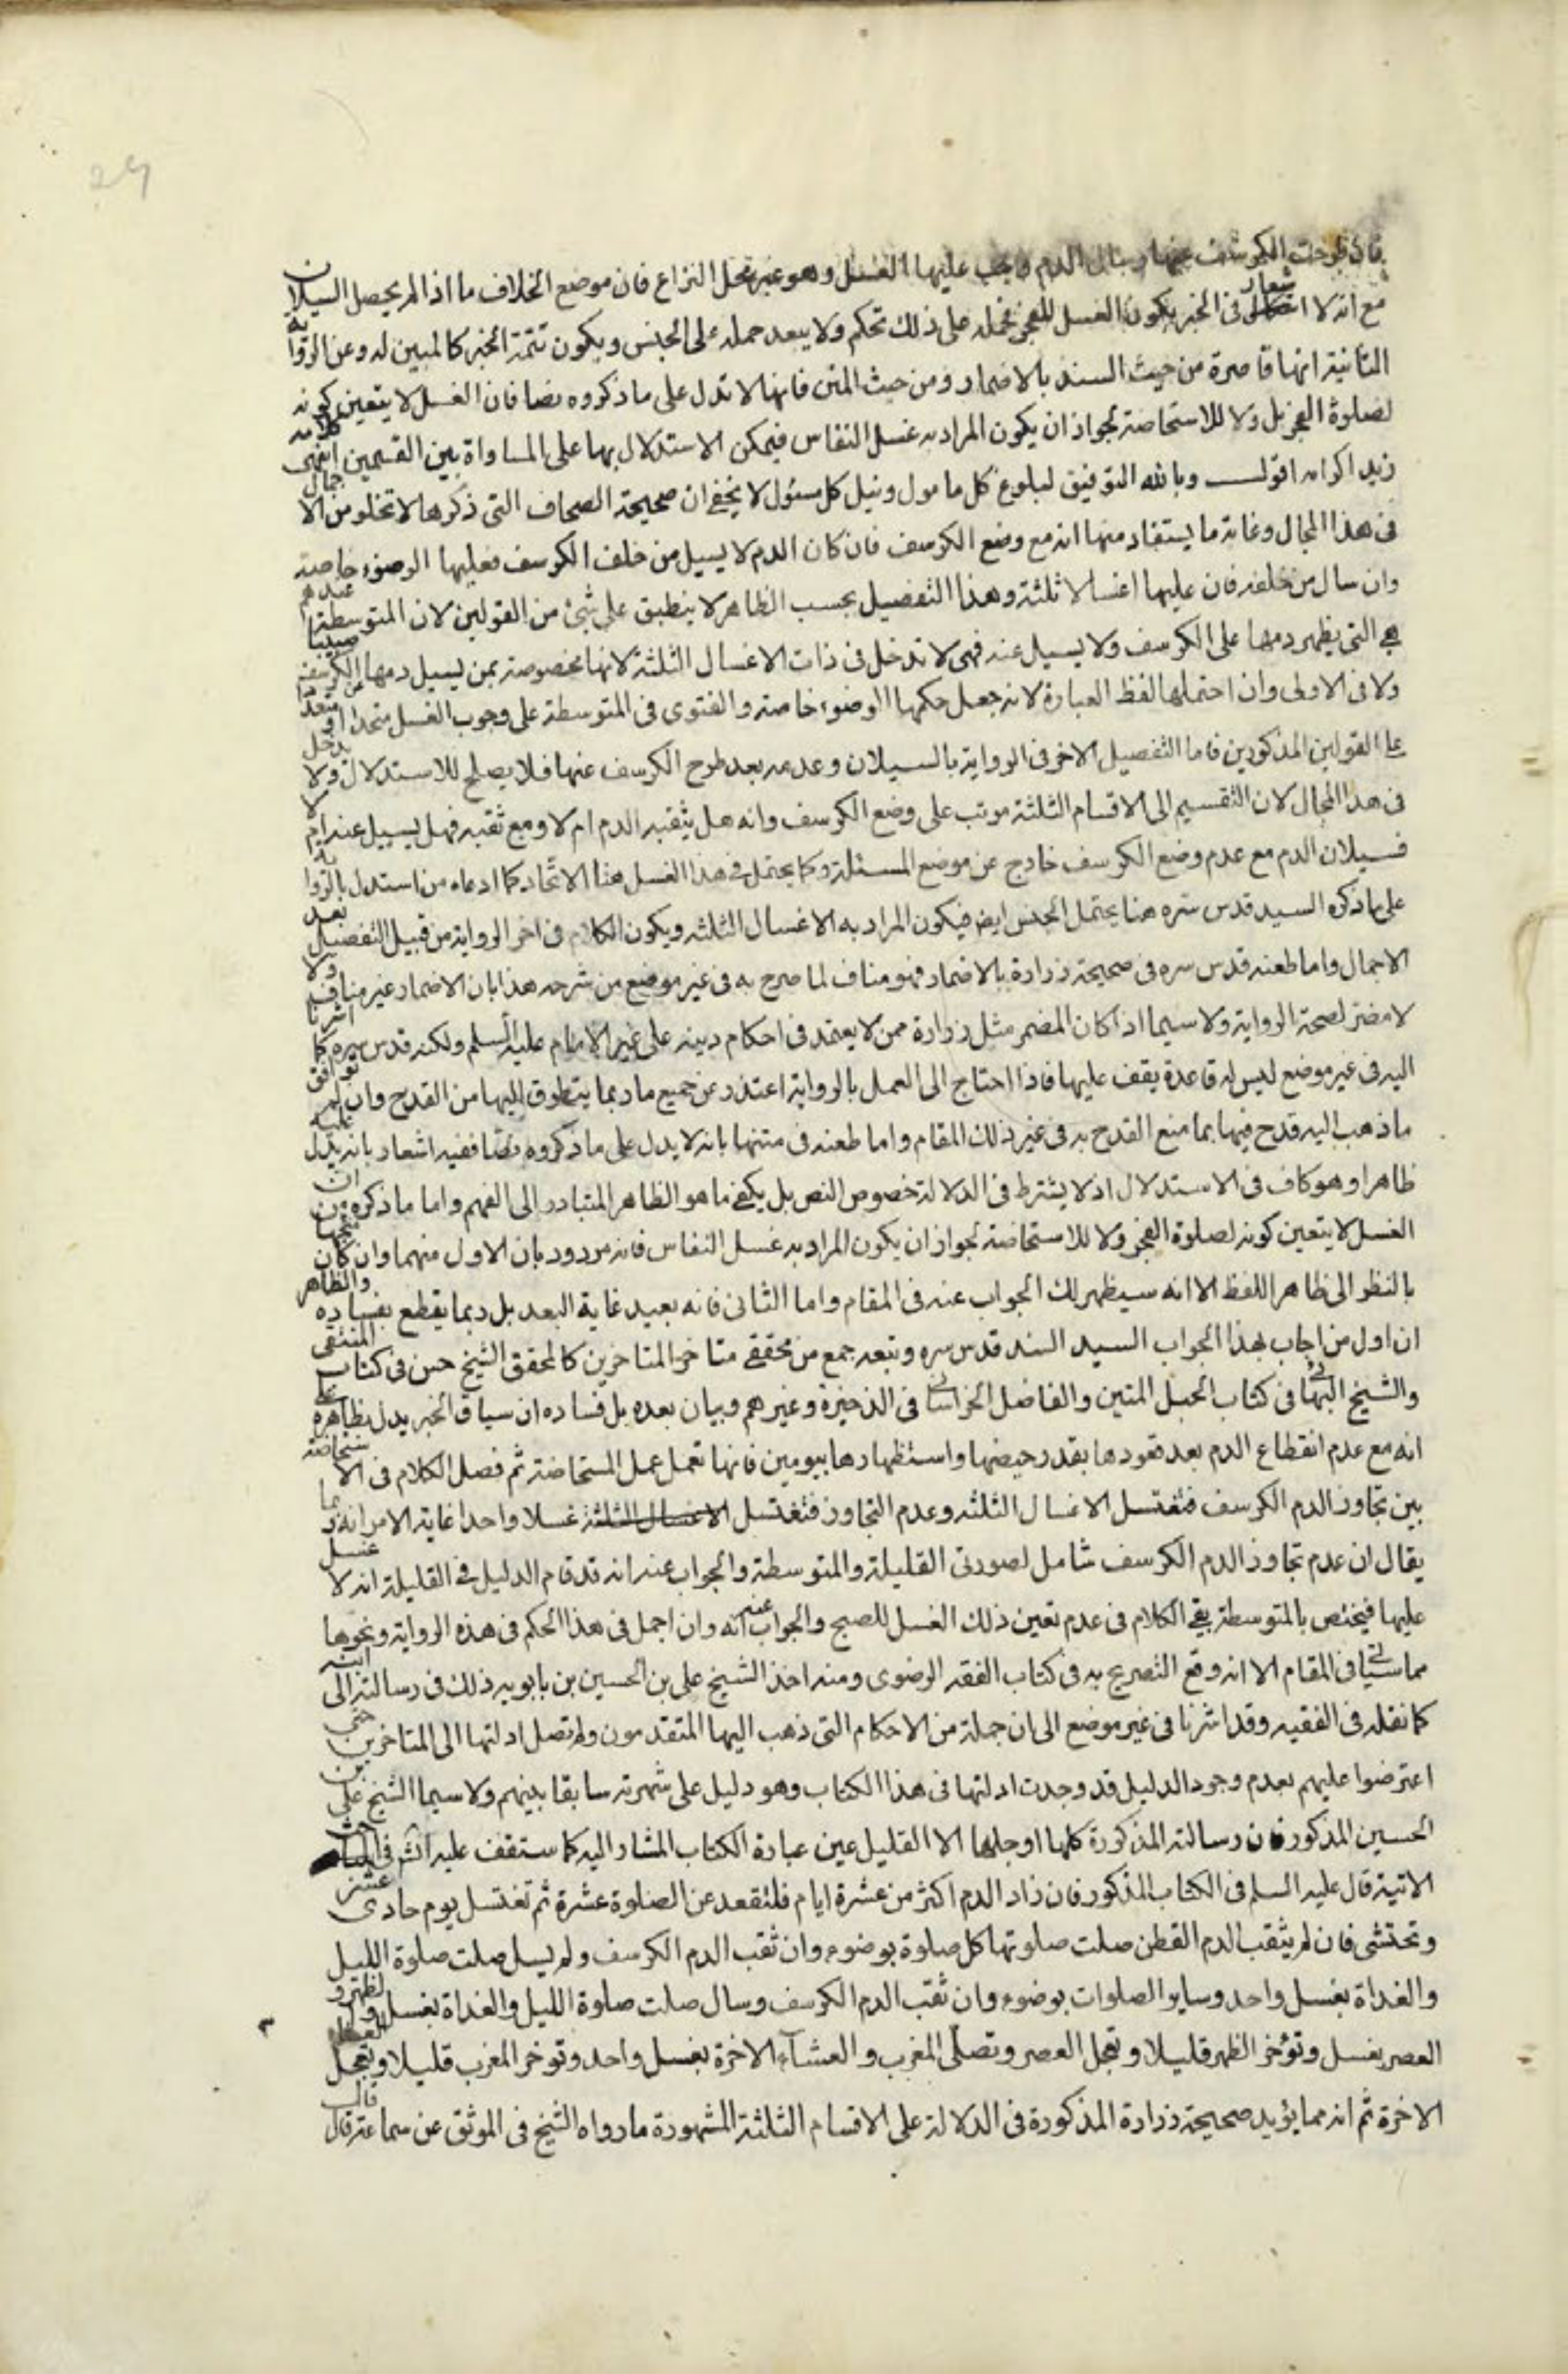 فان طرحت الكرسف عنها وسال الدم وجب عليها الغسل وهو غير محل النزاع فان موضع الخلاف ما اذا لم يحصل السيلان
مع انه لا اشعار فى الخبر بكون الغسل للفجر فحمله على ذلك تحكم ولا يبعد حمله على الجنس ويكون تتمة الخبر كالمبين له وعن الرواية
الثانية انها قاصرة من حيث السند بالاضمار ومن حيث المتن فانها لا تدل على ما ذكروه نصا فان الغسل لا يتعين كونه
لصلوة الفجر بل ولا للاستحاضة لجواز ان يكون المراد به غسل النفاس فيمكن الاستدلال بها على المساواة بين القسمين انتهى كلامه
زيد اكرامه اقول وبالله التوفيق لبلوغ كل مامول ونيل كل مسئول لا يخفى ان صحيحة الصحاف التى ذكرها لا تخلو من الاجمال
فى هذا المجال وغاية ما يستفاد منها انه مع وضع الكرسف فان كان الدم لا يسيل من خلف الكرسف فعليها الوضوء خاصة
وان سال من خلفه فان عليها اغسالا ثلثة وهذا التفصيل بحسب الظاهر لا ينطبق على شئ من القولين لان المتوسطة عندهم
هى التى يظهر دمها على الكرسف ولا يسيل عنه فهى لا تدخل فى ذات الاغسال الثلثة لانها مخصوصة بمن يسيل دمها عن الكرسف صبيبا
ولا فى الاولى وان احتملها لفظ العبارة لانه جعل حكمها الوضوء خاصة والفتوى فى المتوسطة على وجوب الغسل متحدا او متعددا
على القولين المذكورين فاما التفصيل الاخر فى الرواية بالسيلان وعدمه بعد طرح الكرسف عنها فلا يصلح للاستدلال ولا يدخل
فى هذا المجال لان التقسيم الى الاقسام الثلثة مرتب على وضع الكرسف وانه هل يثقبه الدم ام لا ومع ثقبه فهل يسيل عنه ام لا
فسيلان الدم مع عدم وضع الكرسف خارج عن موضع المسئلة وكما يحتمل فى هذا الغسل هنا الاتحاد كما ادعاه من استدل بالرواية
على ما ذكره السيد قدس سره هنا يحتمل الجنس ايضا فيكون المراد به الاغسال الثلثه ويكون الكلام فى اخر الرواية من قبيل التفصيل بعد
الاجمال واما طعنه قدس سره فى صحيحة زرارة بالاضمار فهو مناف لما صرح به فى غير موضع من شرحه هذا بان الاضمار غير مناف ولا
لا مضر لصحة الرواية ولا سيما اذا كان المضمر مثل زرارة ممن لا يعتمد فى احكام دينه على غير الامام عليه السلم ولكنه قدس سره كما اشرنا
اليه فى غير موضع ليس له قاعدة يقف عليها فاذا احتاج الى العمل بالرواية اعتذر عن جميع ما ربما يتطرق اليها من القدح وان لم توافق
ما ذهب اليه قدح فيها بما منع القدح به فى غير ذلك المقام واما طعنه فى متنها بانه لا يدل على ما ذكروه نصا ففيه اشعار بانه يدل عليه
ظاهرا وهو كاف فى الاستدلال اذ لا يشترط فى الدلالة خصوص النص بل يكفى ما هو الظاهر المتبادر الى الفهم واما ما ذكره من ان
الغسل لا يتعين كونه لصلوة الفجر ولا للاستحاضة لجواز ان يكون المراد به غسل النفاس فانه مردود بان الاول منهما وان كان متجها
بالنظر الى ظاهر اللفظ الا انه سيظهر لك الجواب عنه فى المقام واما الثانى فانه بعيد غاية البعد بل ربما يقطع بفساده والظاهر
ان اول من اجاب بهذا الجواب السيد السند قدس سره وتبعه جمع من محققى متاخرى المتاخرين كالمحقق الشيخ حسن فى كتاب المنتقى
والشيخ البهائى فى كتاب الحبل المتين والفاضل الخراسانى فى الذخيرة وغيرهم وبيان بعده بل فساده ان سياق الخبر يدل بظاهره على
انه مع عدم انقطاع الدم بعد قعودها بقدر حيضها واستظهارها بيومين فانها تعمل عمل المستحاضة ثم فصل الكلام فى الاستحاضة
بين تجاوز الدم الكرسف فتغتسل الاغسال الثلثه وعدم التجاوز فتغتسل الاغسال الثلثة غسلا واحدا غاية الامر انه ربما
يقال ان عدم تجاوز الدم الكرسف شامل لصورتى القليلة والمتوسطة والجواب عنه انه قد قام الدليل فى القليلة انه لا غسل
عليها فيختص بالمتوسطة بقى الكلام فى عدم تعين ذلك الغسل للصبح والجواب عنه انه وان اجمل فى هذا الحكم فى هذه الرواية ونحوها
مما سياتى فى المقام الا انه وقع التصريح به فى كتاب الفقه الرضوى ومنه اخذ الشيخ على بن الحسين بن بابويه ذلك فى رسالته الى ابنه
كما نقله فى الفقيه وقد اشرنا فى غير موضع الى ان جملة من الاحكام التى ذهب اليها المتقدمون ولم تصل ادلتها الى المتاخرين حتى
اعترضوا عليهم بعدم وجود الدليل قد وجدت ادلتها فى هذا الكتاب وهو دليل على شهرته سابقا بينهم ولا سيما الشيخ على بن
الحسين المذكور فان رسالته المذكورة كلها او جلها الا القليل عين عبارة الكتاب المشار اليه كما ستقف عليه انشه فى
الاتية قال عليه السلم فى الكتاب المذكور فان زاد الدم اكثر من عشرة ايام فلتقعد عن الصلوة عشرة ثم تغتسل يوم حادى عشر
وتحتشى فان لم يثقب الدم القطن صلت صلوتها كل صلوة بوضوء وان ثقب الدم الكرسف ولم يسل صلت صلوة الليل
والغداة بغسل واحد وساير الصلوات بوضوء وان ثقب الدم الكرسف وسال صلت صلوة الليل والغداة بغسل والظهر و
العصر بغسل وتؤخر الظهر قليلا وتعجل العصر وتصلى المغرب والعشاء الاخرة بغسل واحد وتوخر المغرب قليلا وتعجل العشاء
الاخرة ثم انه مما يؤيد صحيحة زرارة المذكورة فى الدلالة على الاقسام الثلثة المشهورة ما رواه الشيخ فى الموثق عن سماعة قال قال